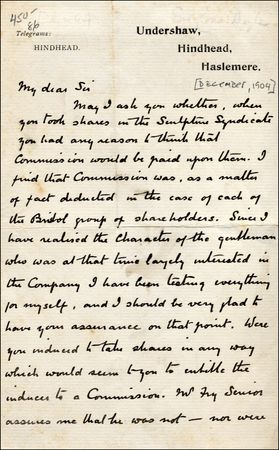 450-
86
Telegrams:
HINDHEAD.
Undershaw,
Hindhead,
Haslemere.
[DECEMBER, 1904]
My dear Sir
May I ask you whether, when
you took shares in the Sculpture Syndicate
you had any reason to think that
Commission would be paid upon them. I
find that Commission was, as a matter
of fact deducted in the case of each of
the Bristol group of shareholders. Since I
have realised the character of the gentleman
who was at that time largely interested in
the Company I have been testing everything
for myself, and I should be very glad to
have your assurance on that point. Were
you induced to take shares in any way
which would seem to you to entitle the
inducer to a Commission. Mr Fry Senior
assures me that he was not — nor were